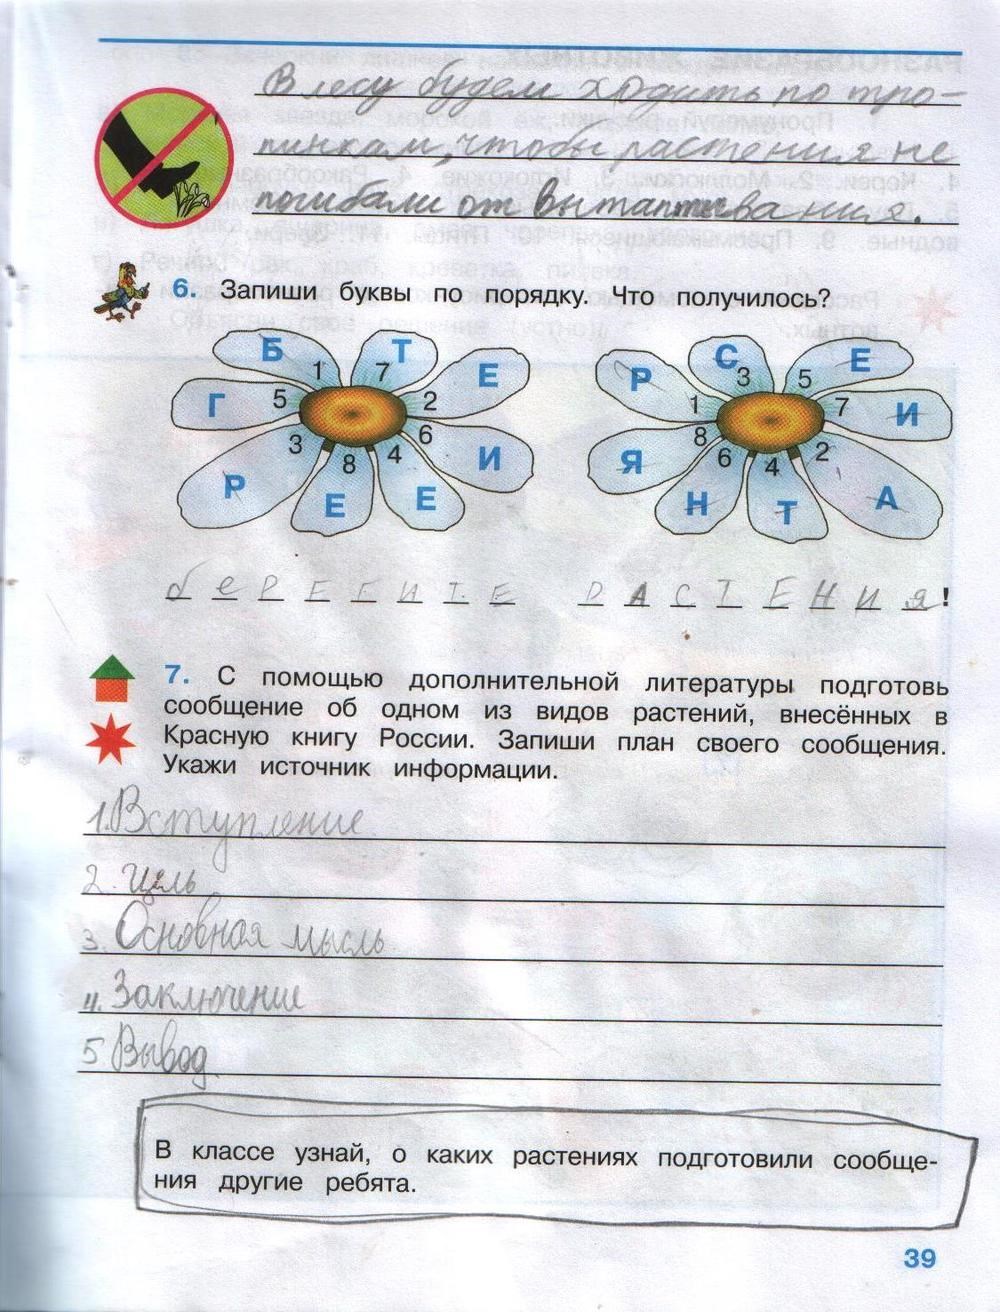 В лесу будем ходить по тро-
пинкам, чтобы растения не
погибали от вытаптывания.
6. Запиши буквы по порядку. Что получилось?
Б Т Е Г И Р Е Е
1 7 2 5 6 3 8 4
Р С Е И Я Н Т А
1 3 5 7 8 6 4 2
б е Р Е Г И Т Е Р А С Т Е Н И Я !
7. С помощью дополнительной литературы подготовь
сообщение об одном из видов растений, внесённых в
Красную книгу России. Запиши план своего сообщения.
Укажи источник информации.
1. Вступление
2. Цель
3. Основная мысль
4. Заключение
5 Вывод.
В классе узнай, о каких растениях подготовили сообще-
ния другие ребята.
39